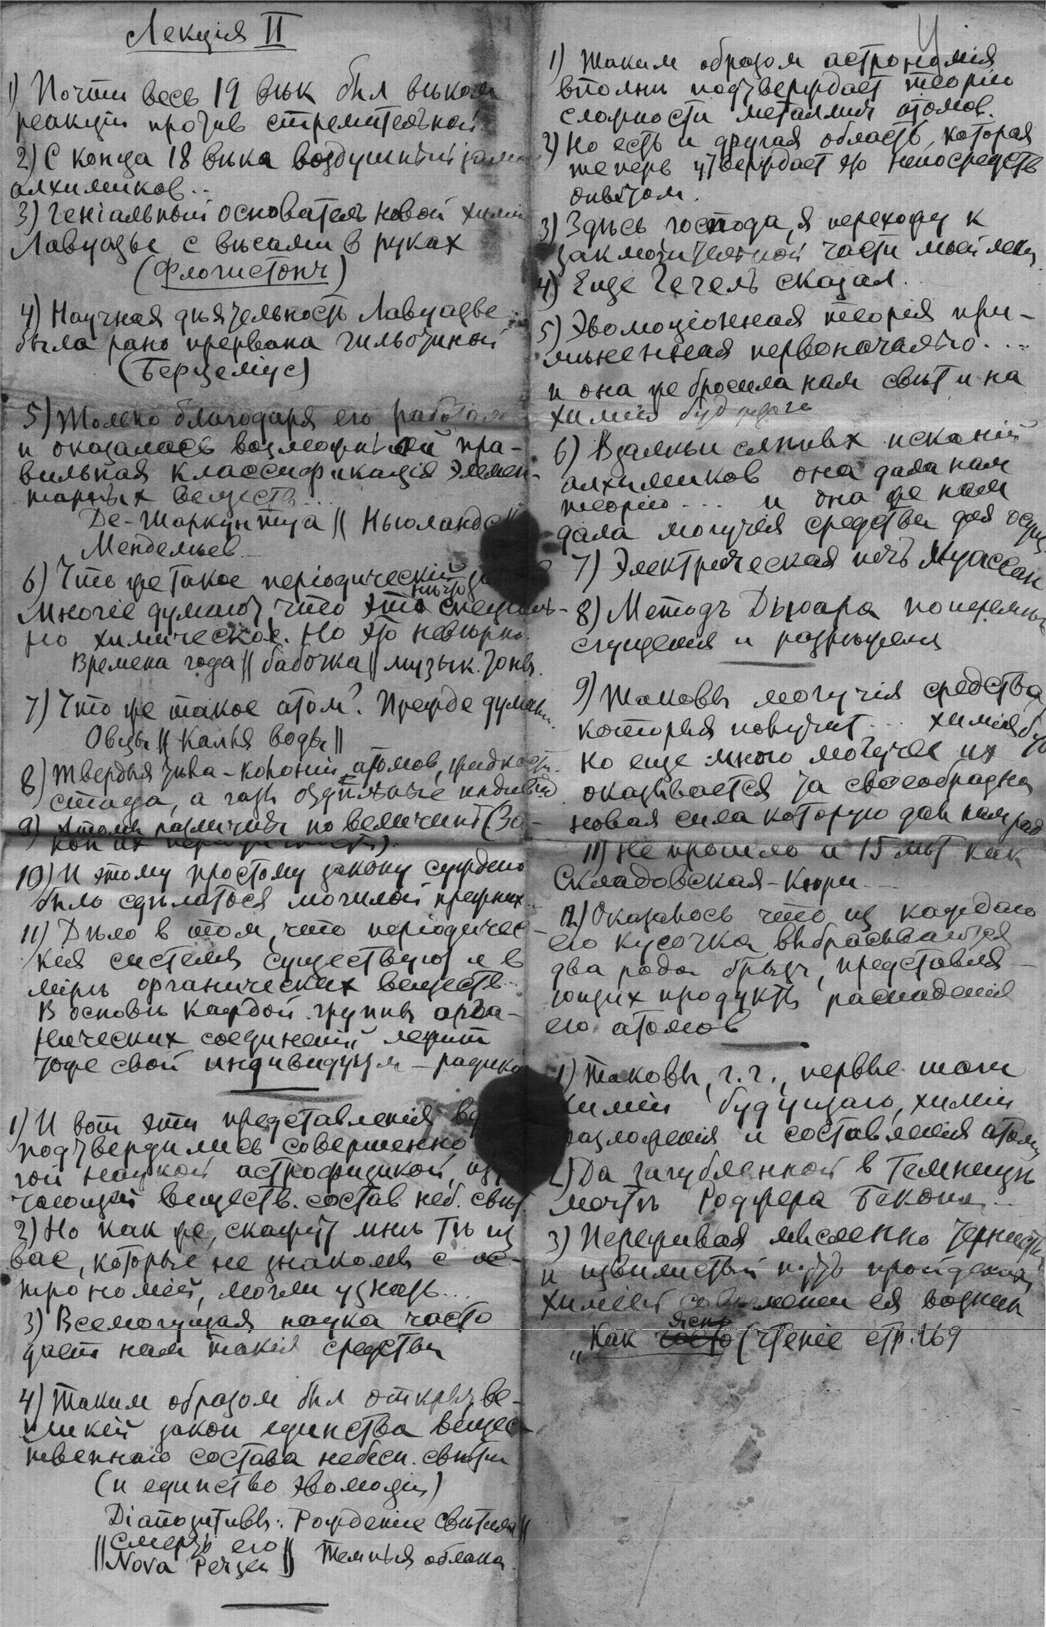 Лекція II
1) Почти весь 19 вѣк был вѣком
реакціи против стремительной
2) С конца 18 вѣка воздушный
алхимиков..
3) Геніальный основатель новой химіи
Лавуазье с вѣсами в руках
(Флогистон)
4) Научная дѣятельность Лавуазье
была рано прервана гильотиной
(Берцеліус)
5) Только благодаря его работам
и оказалась возможной пра-
вильная классификація элемен-
тарных веществ...
Де-Шаркуртуа || Ньюландс ||
Менделѣев.
6) Что же такое періодическій
Многіе думают что это нѣчто спеціаль-
но химическое. Но это невѣрно.
Времена года || бабочка || музык. тоны.
7) Что же такое атом? Прежде думали
Овцы || Капля воды ||
8) Твердыя тѣла - колоніи атомов, жидкости
стада, а газы отдѣльные индивид
9) Атомы различны по величинѣ (За-
кон их періодичности).
10) И этому простому закону суждено
было сдѣлаться могилой прежних..
11) Дѣло в том, что періодичес-
кія системы существуют и в
мірѣ органических веществ..
В основѣ каждой группы орга-
нических соединеній лежит
тоже свой индивидуум - радикал
1) И вот эти представленія
подтвердились совершенно
гой наукой астрофизикой, изу-
чающей веществ. состав неб. свѣт.
2) Но как же, скажут мнѣ тѣ из
вас, которые не знакомы с ас-
трономіей, могли узнать...
3) Всемогущая наука часто
дает нам такія средства
4) Таким образом был открыт ве-
ликій закон единства вещес-
твеннаго состава небесн. свѣтил
(и единство эволюціи)
Діапозитивы: Рожденіе свѣтила ||
|| смерть его ||
|| Nova Персея || Темныя облака
1) Таким образом астрономія
вполнѣ подтверждает теорію
сложности металлич атомов.
2) Но есть и другая область, которая
теперь утверждает это непосредств
опытом.
3) Здѣсь господа, я перехожу к
заключительной части моей лекц
4) Еще Гегель сказал..
5) Эволюціонная теорія при-
мѣненная первоначально....
и она же бросила нам свѣт и на
химію
6) Взамѣн слѣпых исканій
алхимиков она дала нам
теорію... и она же нам
дала могучія средства для осущ
7) Электрическая печь Муассана
8) Методъ Дьюара поперемѣн
сгущенія и разрѣженія
9) Таковы могучія средства,
которыя получит... химія буд
Но еще много могучее их
оказывается та своеобразная
новая сила которую дал нам рад
11) Не прошло и 15 лѣт как
Складовская-Кюри...
12) Оказалось что из каждаго
его кусочка выбрасывается
два рода брызг, представля-
ющих продукты распаденія
его атомов
1) Таковы, г.г., первые шаги
химіи будущаго, химіи
разложенія и составленія атомов
2) Да загубленной в темницѣ
мечты Роджера Бекона...
3) Переживая мысленно тернист
и извилистый путь пройденный
химіей со времени ея возник
„Как ясно (чтеніе стр. 269